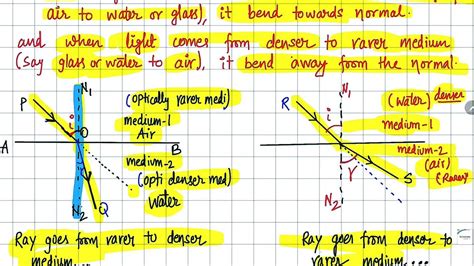 air to water or glass), it bend towards normal.
and when light comes from denser to rarer medium
(say glass or water to air), it bend away from the normal.
P
N1
i
O
(optically rarer medi)
medium-1
Air
A
B
medium-2
(opti denser med)
Water
N2
Q
R
N1
i
(water) denser
medium-1
medium-2
(air)
(Rarer)
r
S
N2
Ray goes from rarer to denser
medium....
Ray goes from denser to
rarer medium....